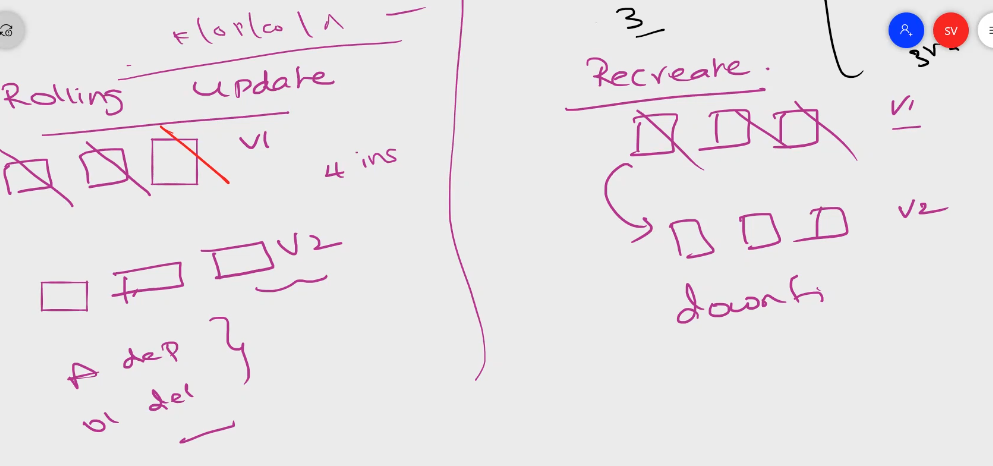 Rolling Update
V1
4 ins
V2
dep
del
3
Recreate.
V1
V2
downti
SV